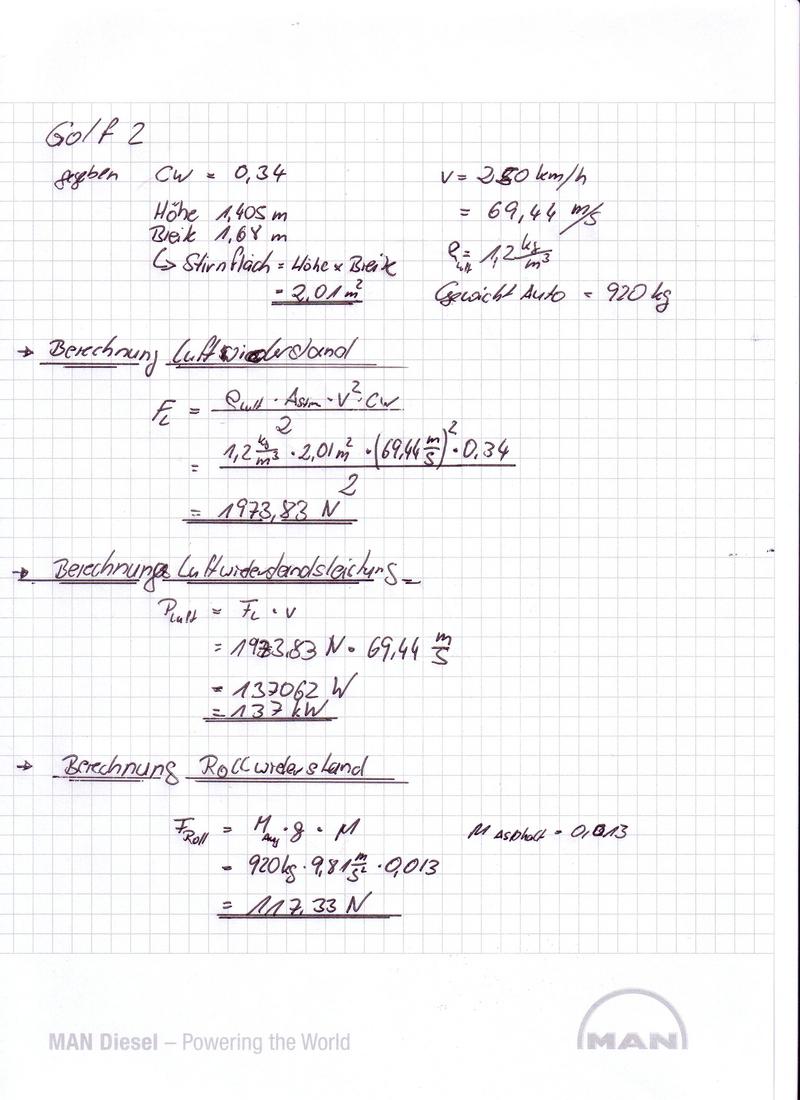 Golf 2
gegeben CW = 0,34 v = 250 km/h
Höhe 1,405 m = 69,44 m/s
Breite 1,68 m ρ Luft = 1,2 kg/m³
↳ Stirnfläch = Höhe x Breite
= 2,01 m² Gewicht Auto = 920 kg
→ Berechnung Luftwiederstand
F_L = ρ_Luft · A_Stirn · v² · cw / 2
= 1,2 kg/m³ · 2,01 m² · (69,44 m/s)² · 0,34 / 2
= 1973,83 N
→ Berechnung Luftwiderstandsleistung
P_Luft = F_L · v
= 1973,83 N · 69,44 m/s
= 137062 W
= 137 kW
→ Berechnung Rollwiderstand
F_Roll = M · g · μ μ Asphalt = 0,013
= 920 kg · 9,81 m/s² · 0,013
= 117,33 N
MAN Diesel – Powering the World
MAN